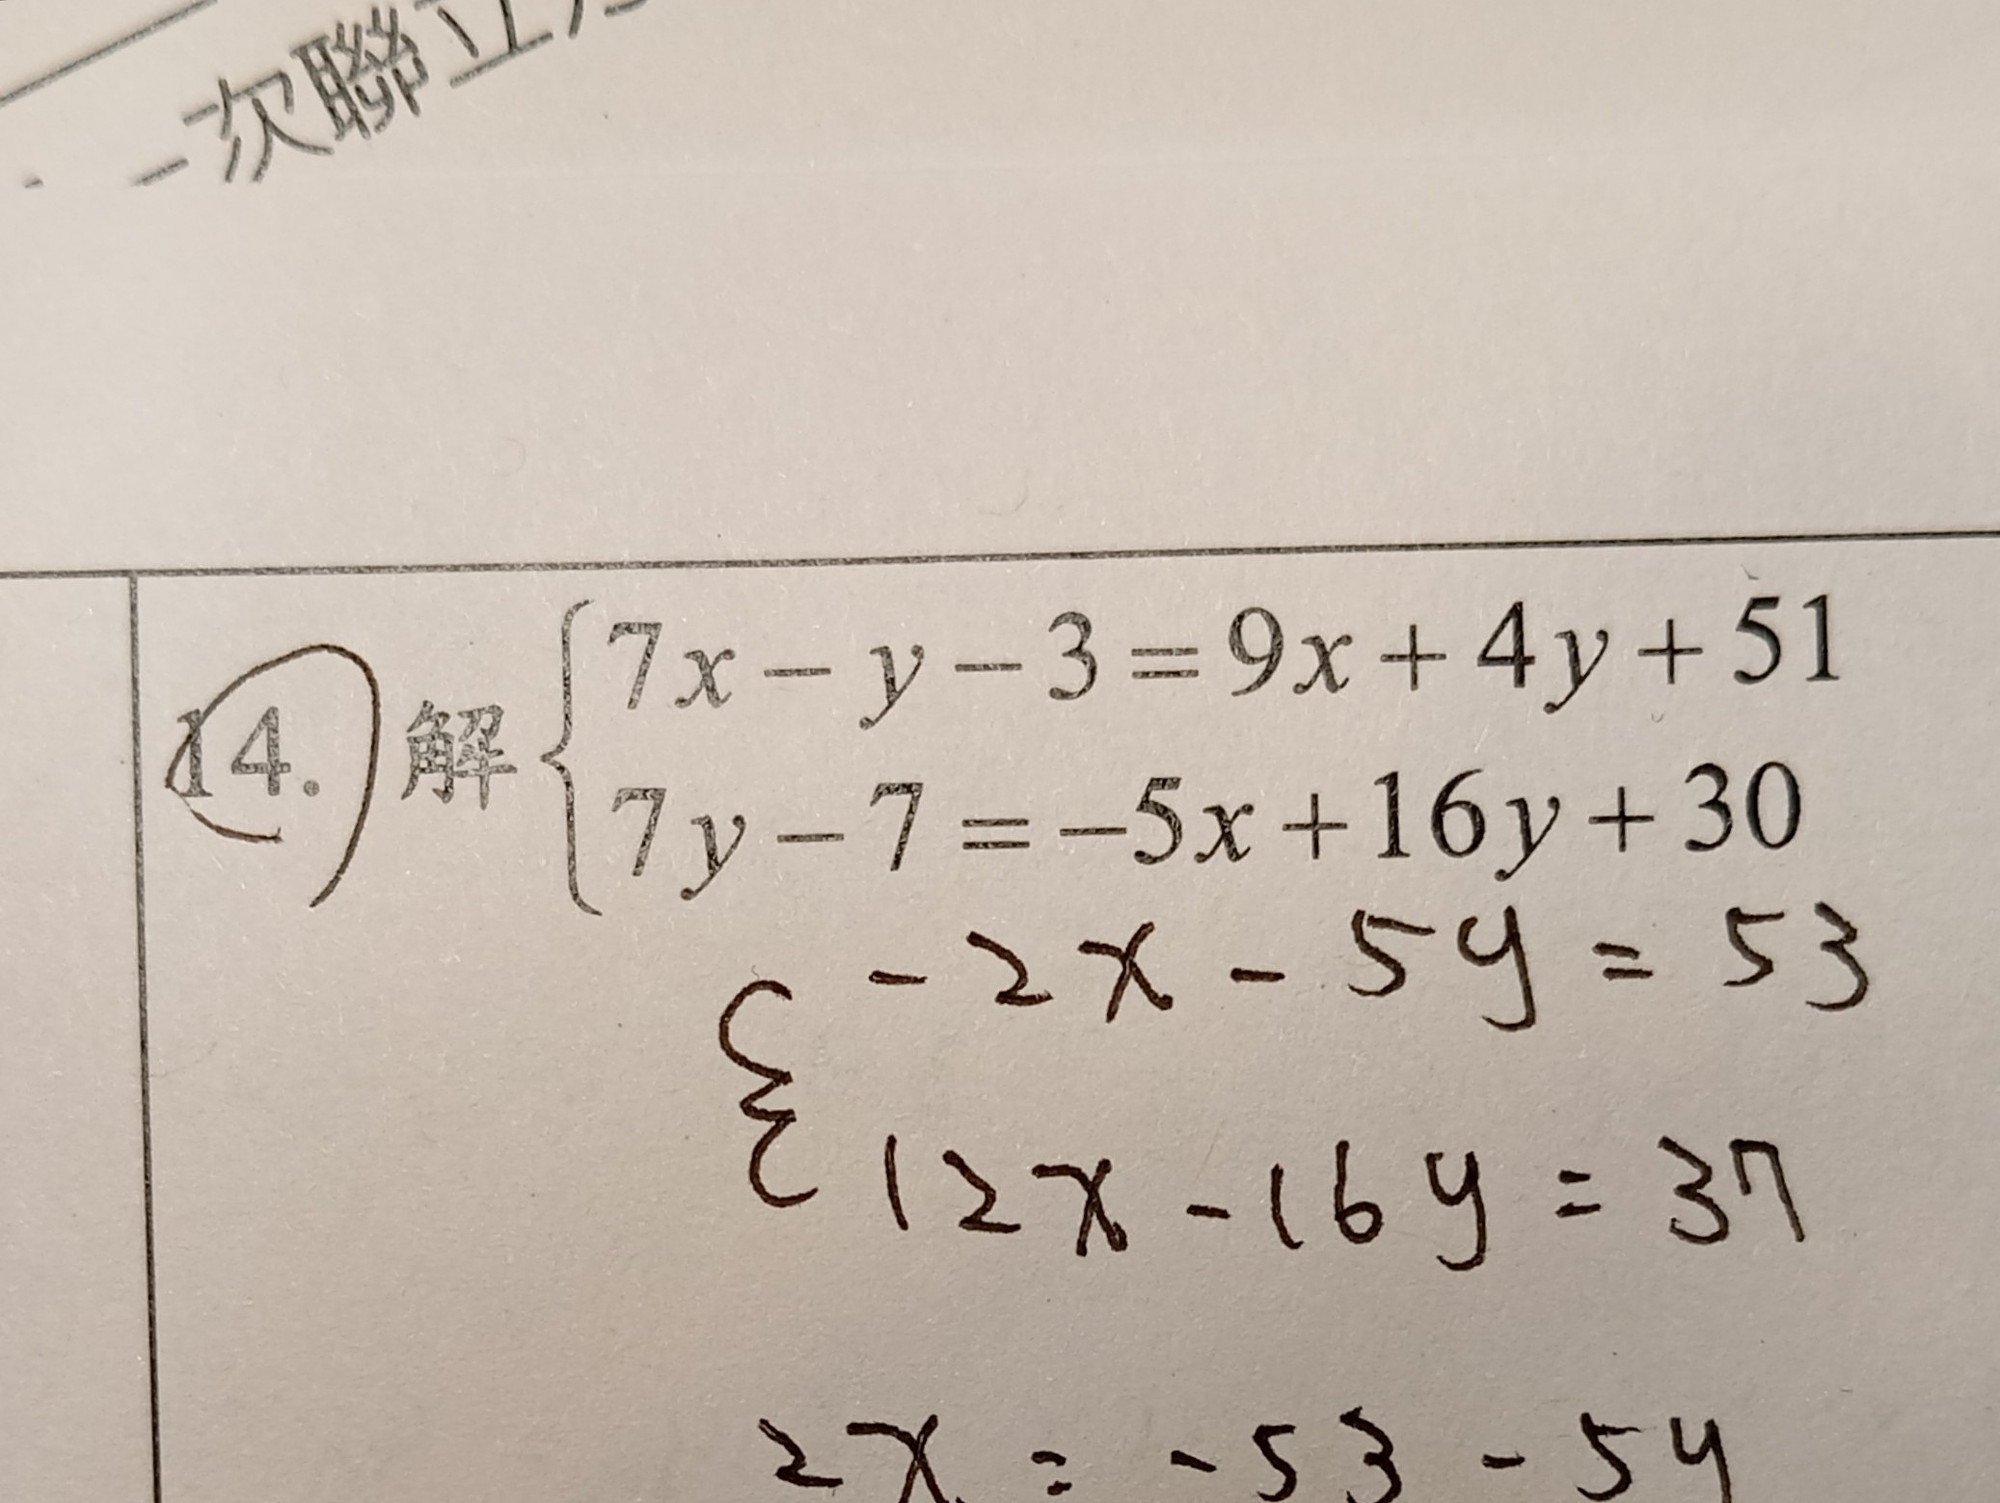 一次聯立
14. 解 { 7x − y − 3 = 9x + 4y + 51
7y − 7 = −5x + 16y + 30
{ -2x - 5y = 53
12x - 16y = 37
2x = -53 - 5y